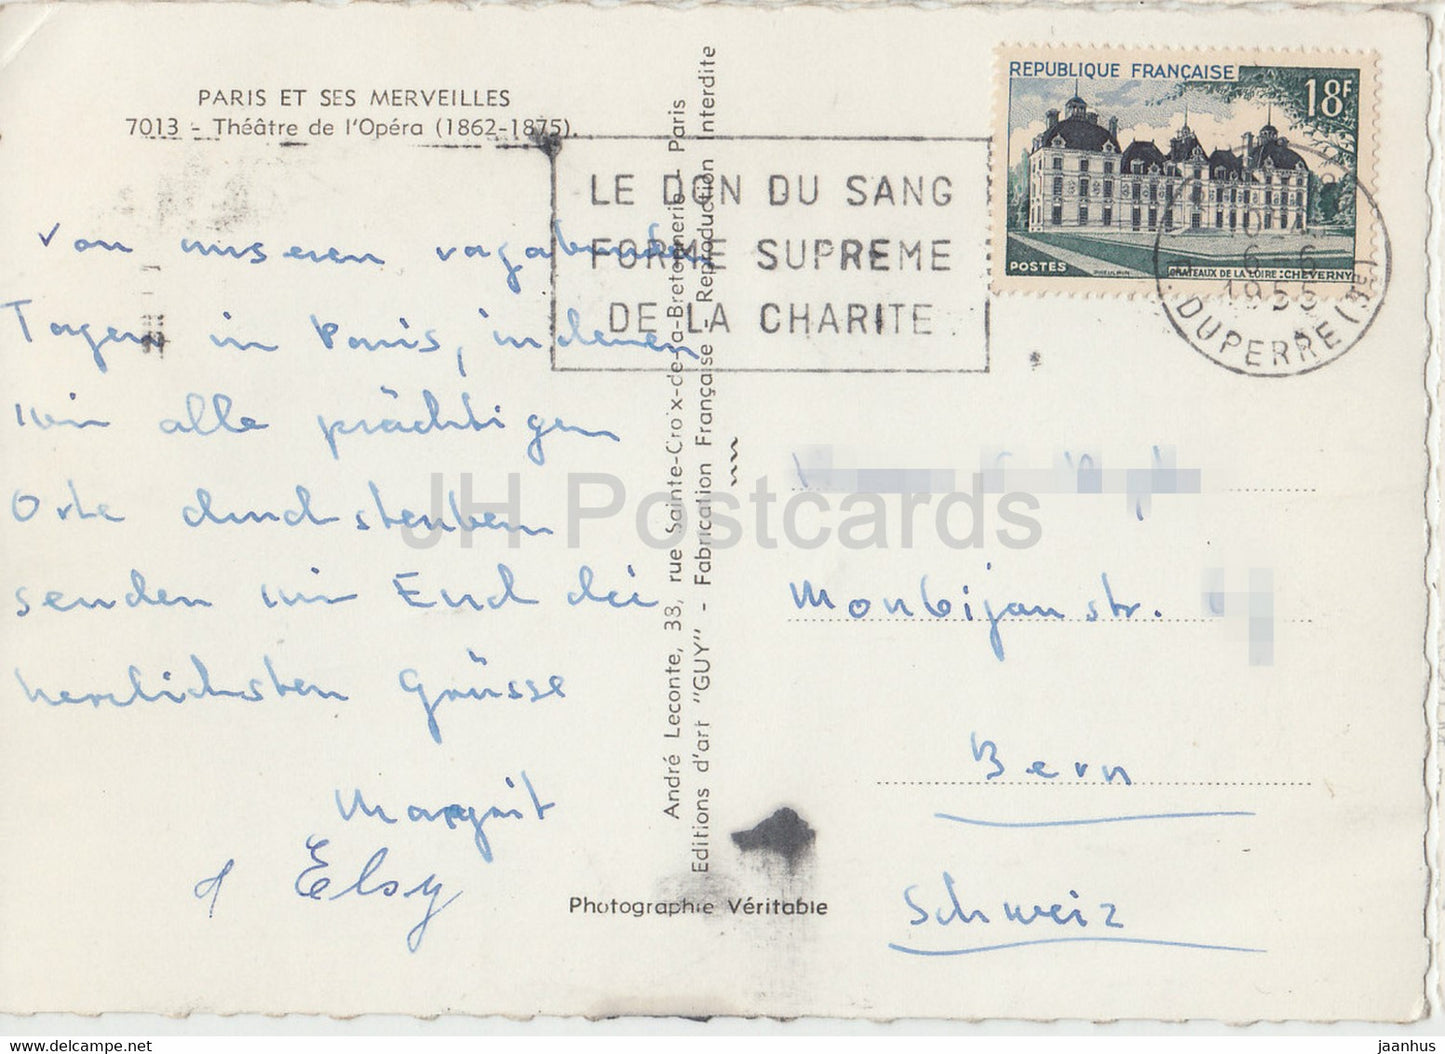 PARIS ET SES MERVEILLES
7013 - Théâtre de l'Opéra (1862-1875).
Von unseren vagabunden
Tagen in Paris, in denen
wir alle prächtigen
Orte durchstöbern
senden wir Euch die
herzlichsten Grüsse
Margrit
& Elsy
LE DON DU SANG
FORME SUPREME
DE LA CHARITE
REPUBLIQUE FRANÇAISE
18F
POSTES
CHATEAUX DE LA LOIRE: CHEVERNY
6-6
1955
DUPERRE (
André Leconte, 38, rue Sainte-Croix-de-la-Bretonnerie - Paris
Editions d'art "GUY" - Fabrication Française - Reproduction Interdite
Photographie Véritable
Monbijoustr.
Bern
Schweiz
JH Postcards
www.delcampe.net
jaanhus